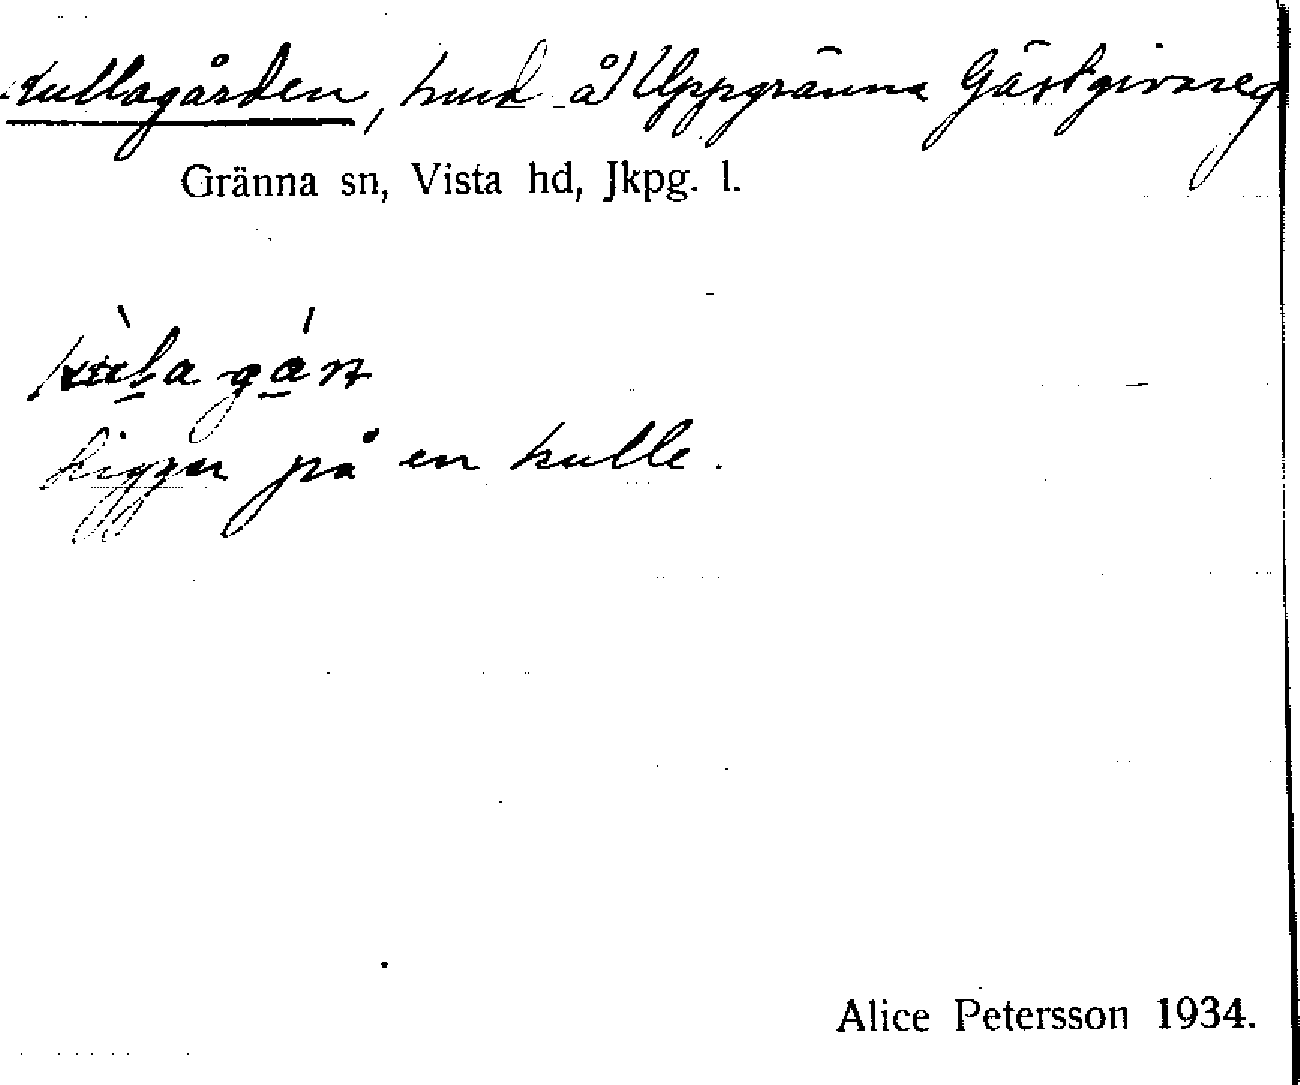 Kullagården, hmd å Uppgränna Gästgivareg
Gränna sn, Vista hd, Jkpg. l.
Ligger på en kulle.
Alice Petersson 1934.